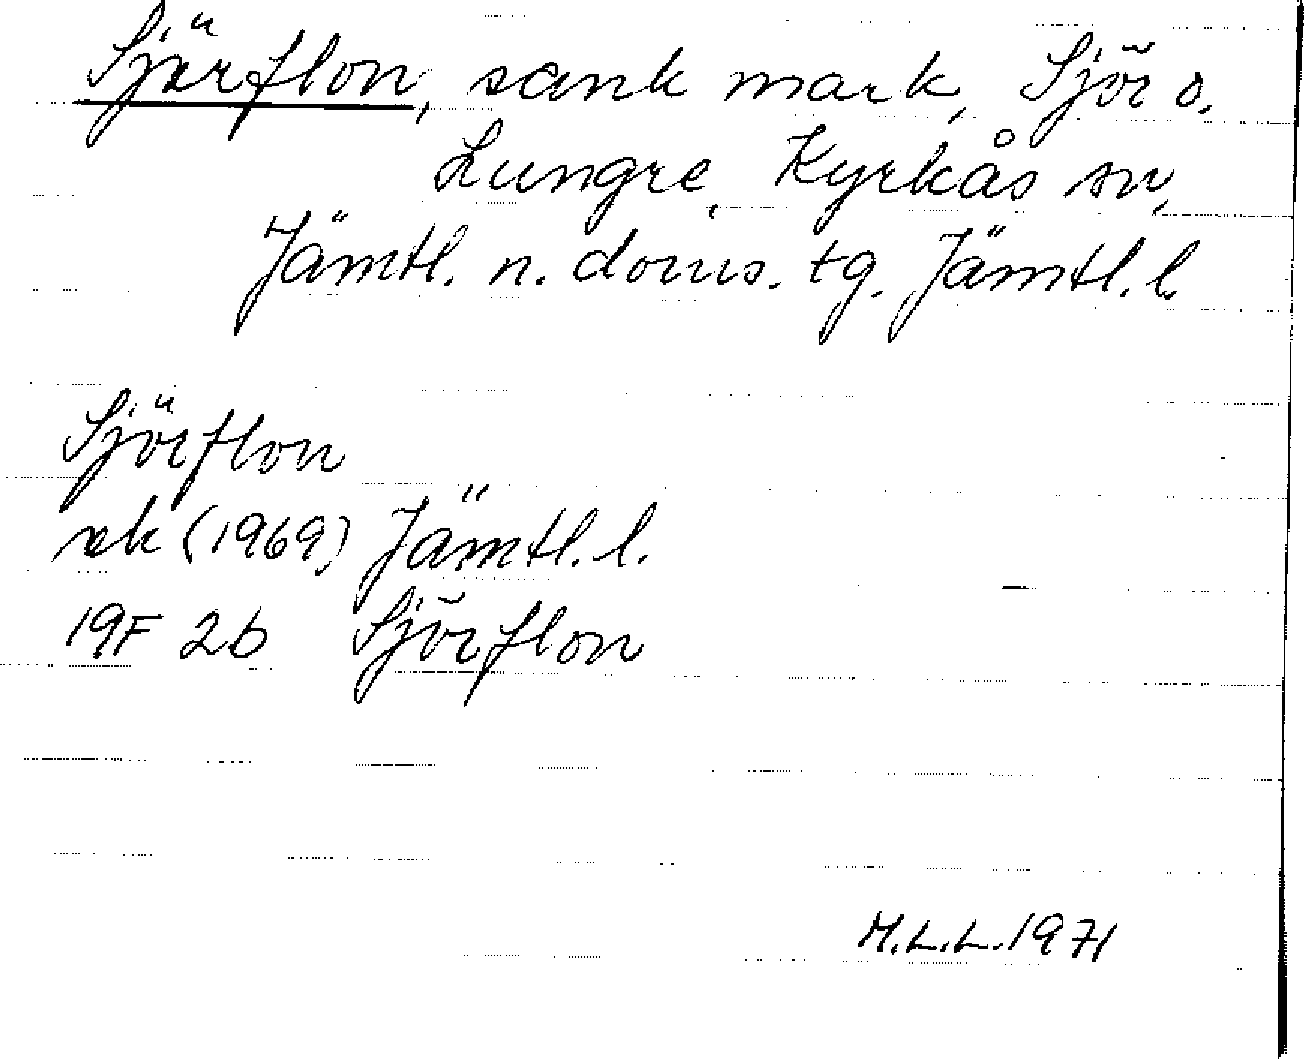 Sjörflon, sank mark, Sjör o.
Lungre, Kyrkås sn,
Jämtl. n. doms. tg. Jämtl. l.
Sjörflon
ek (1969) Jämtl. l.
19F 2b Sjörflon
M.L.L. 1971